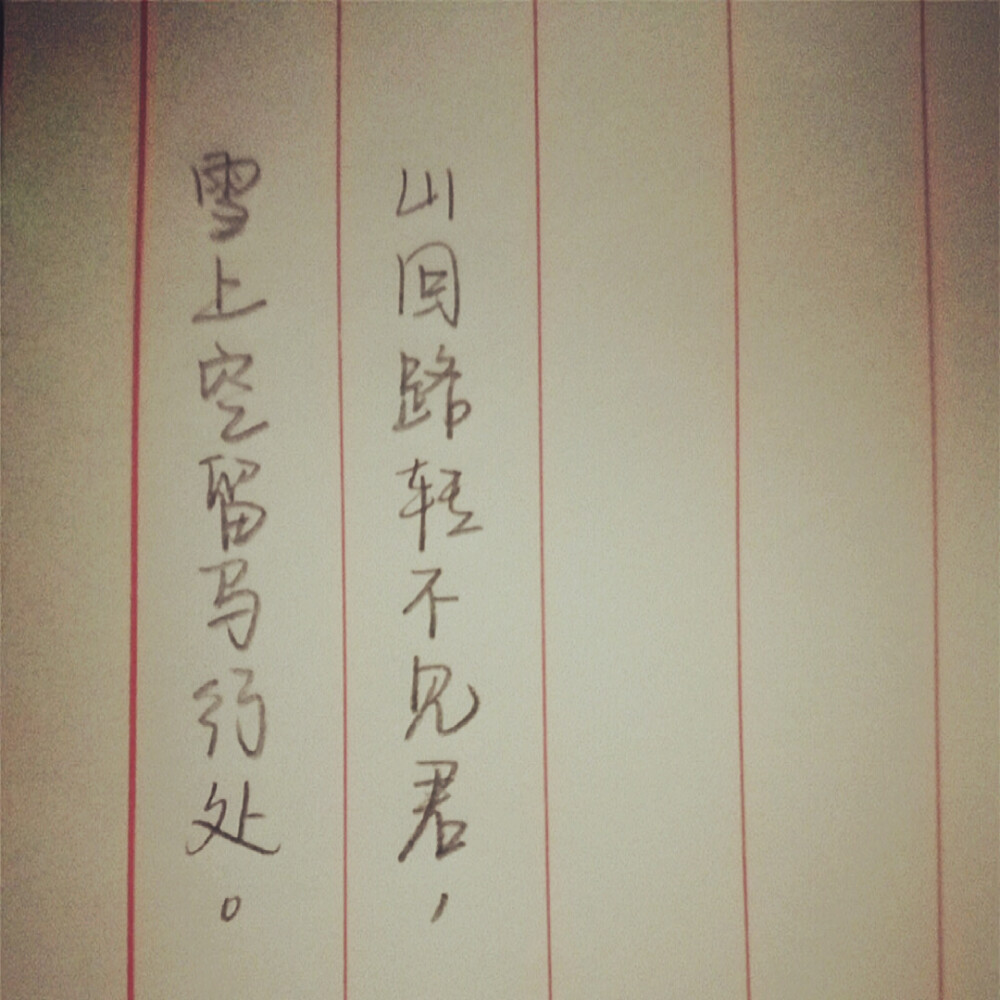 山回路转不见君，
雪上空留马行处。